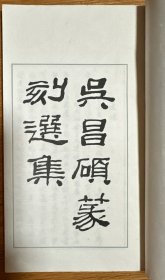 吳昌碩篆
刻選集